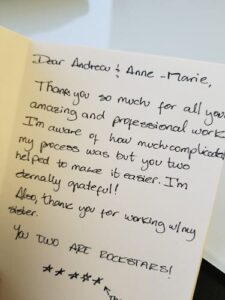 Dear Andrew & Anne-Marie,
Thank you so much for all your
amazing and professional work.
I'm aware of how much complicated
my process was but you two
helped to make it easier. I'm
eternally grateful!
Also, thank you for working w/my
sister.
YOU TWO ARE ROCKSTARS!
★★★★★